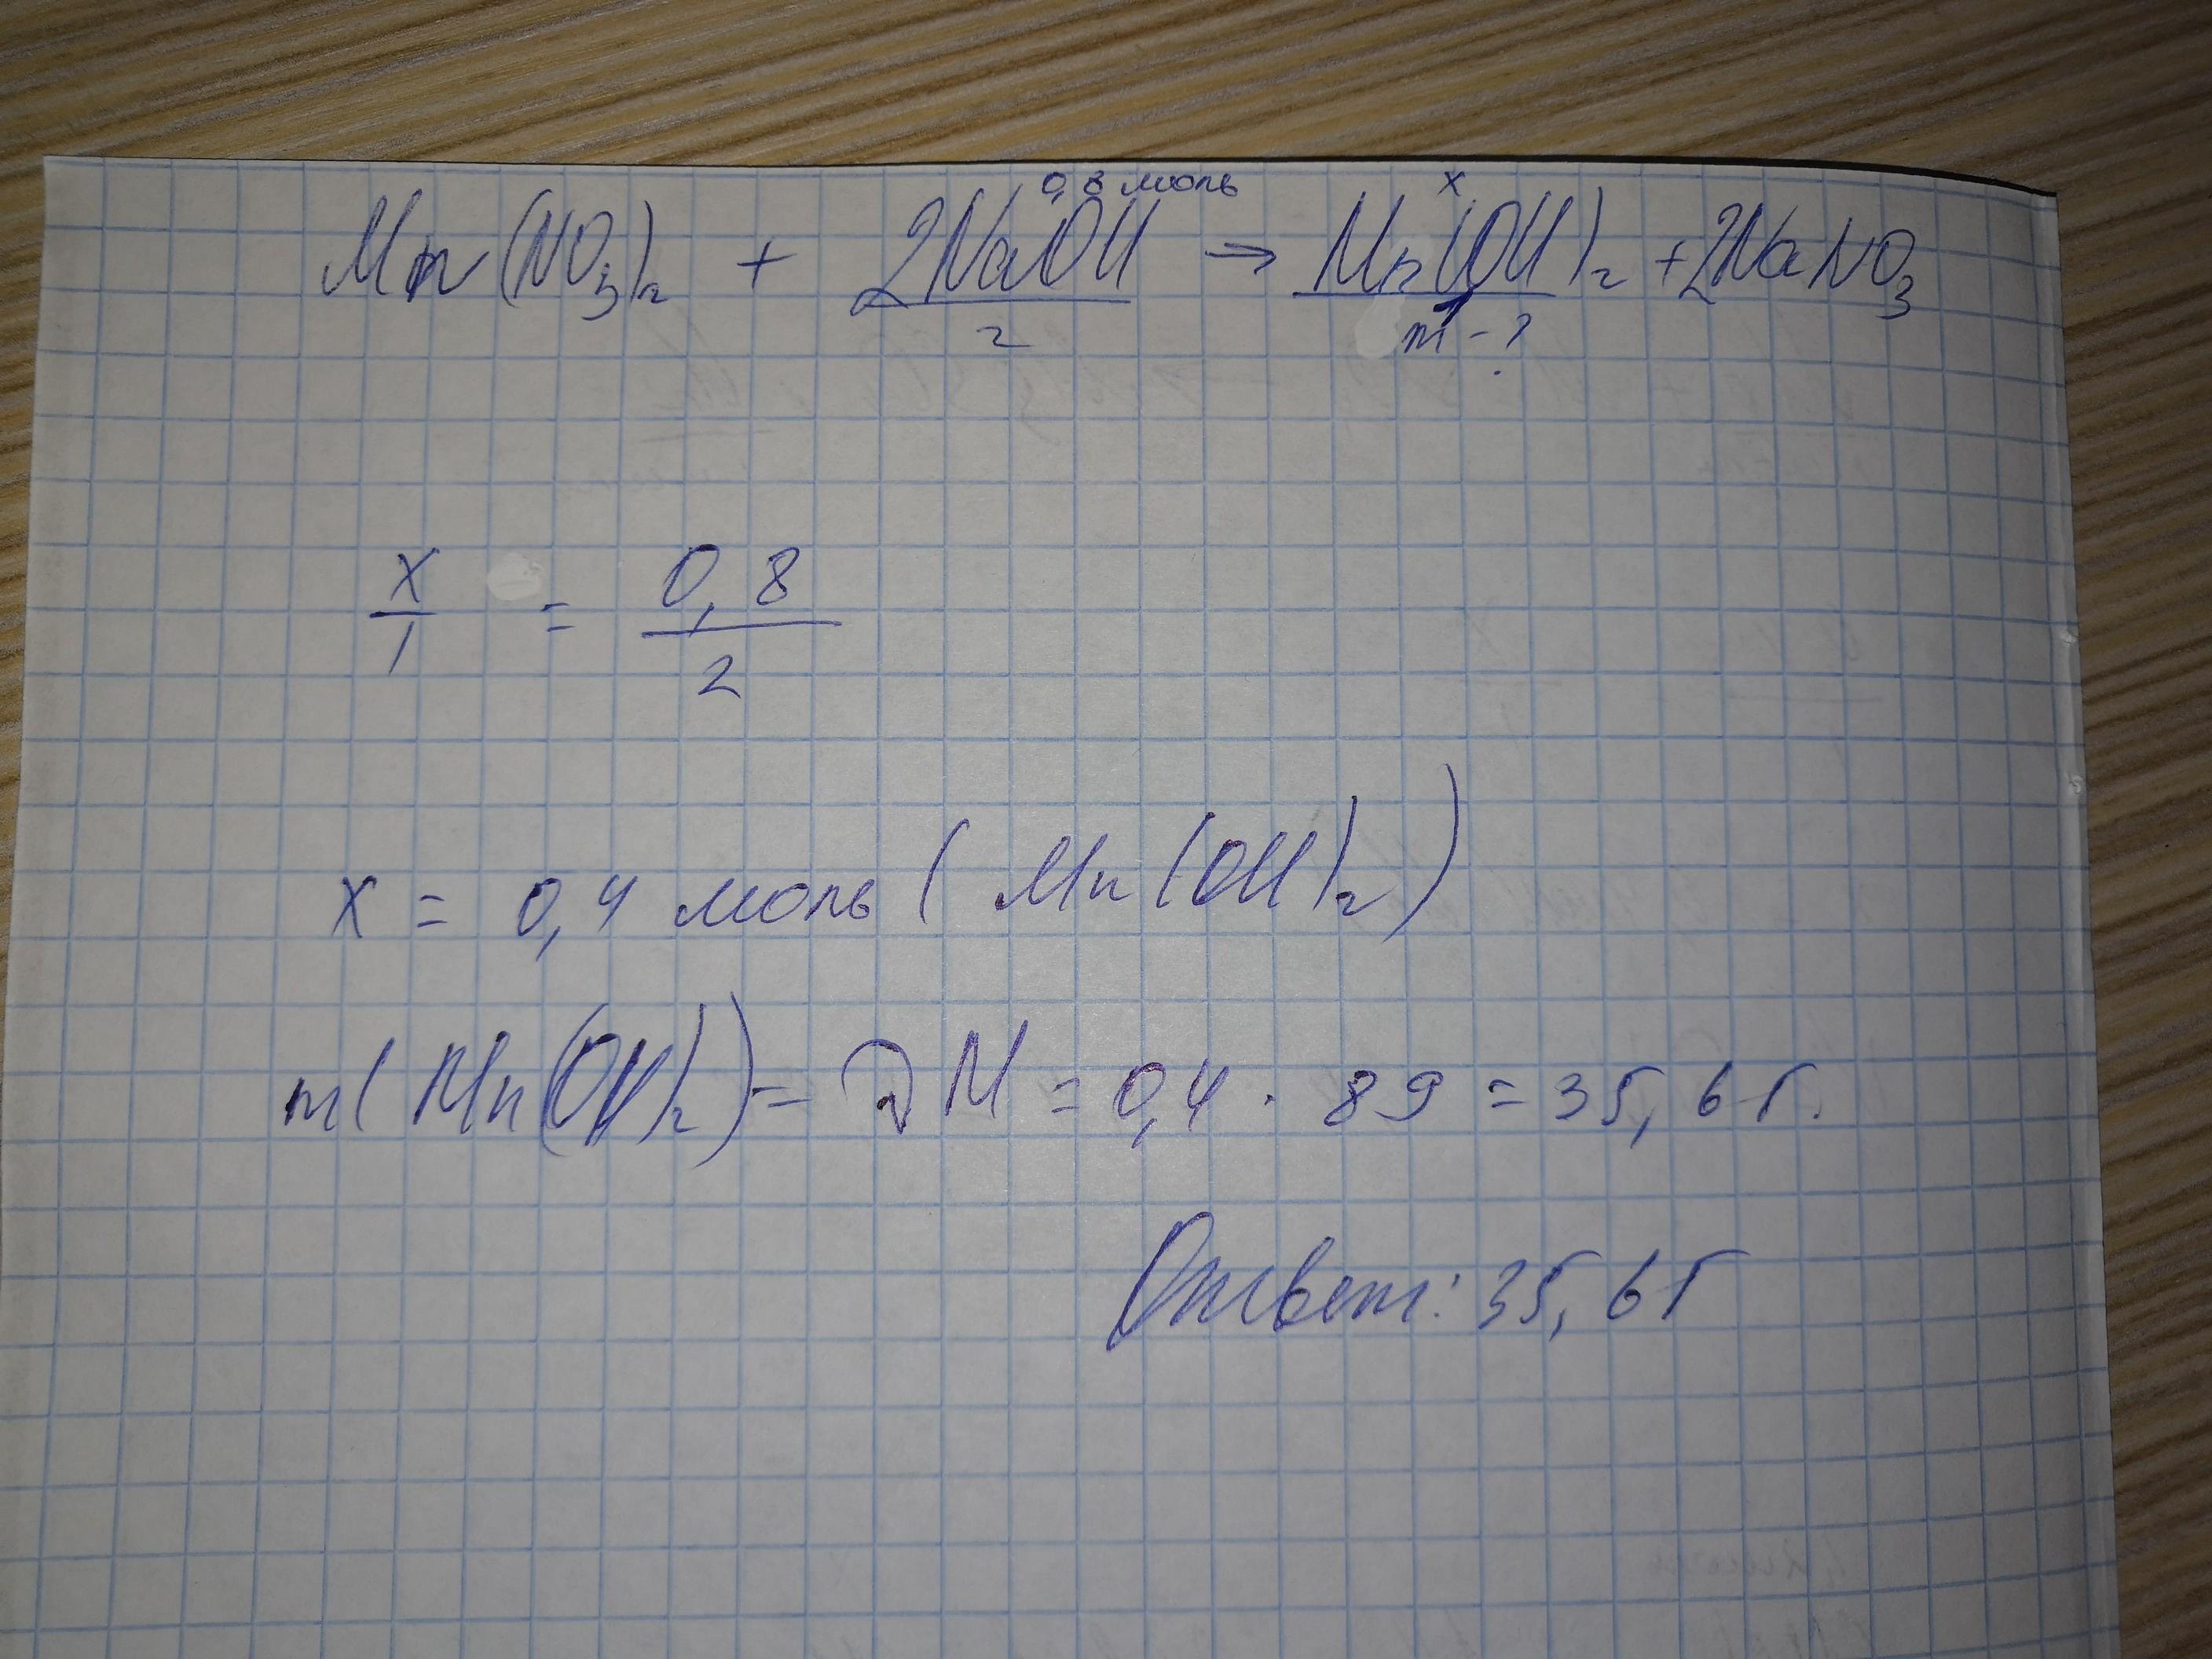 0,8 моль x
Mn(NO3)2 + 2NaOH → Mn(OH)2 + 2NaNO3
2 1
m - ?
x/1 = 0,8/2
x = 0,4 моль (Mn(OH)2)
m(Mn(OH)2) = νM = 0,4 · 89 = 35,6 г.
Ответ: 35,6 г